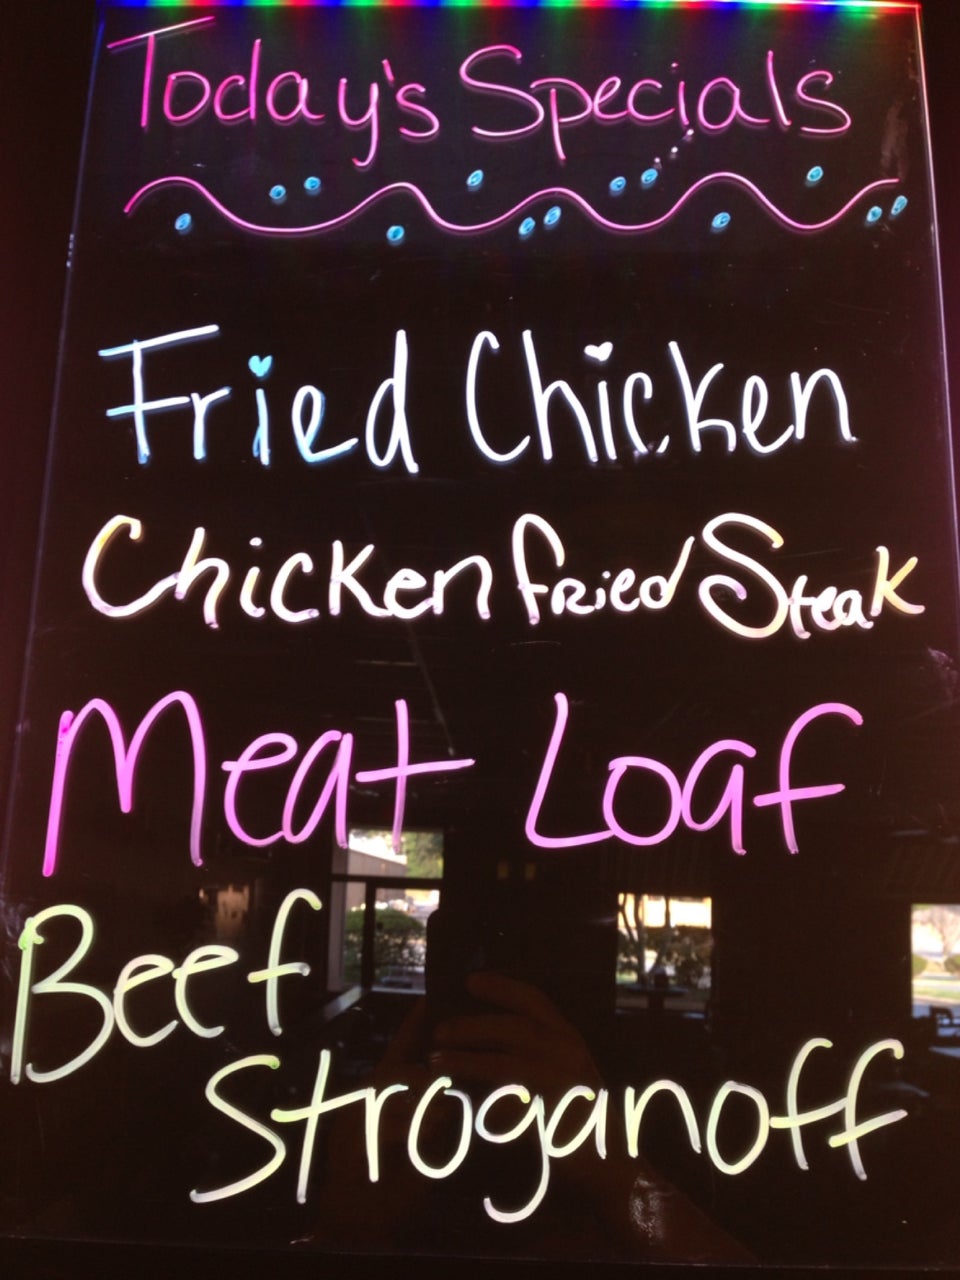 Today's Specials
Fried Chicken
Chicken fried Steak
Meat Loaf
Beef
Stroganoff